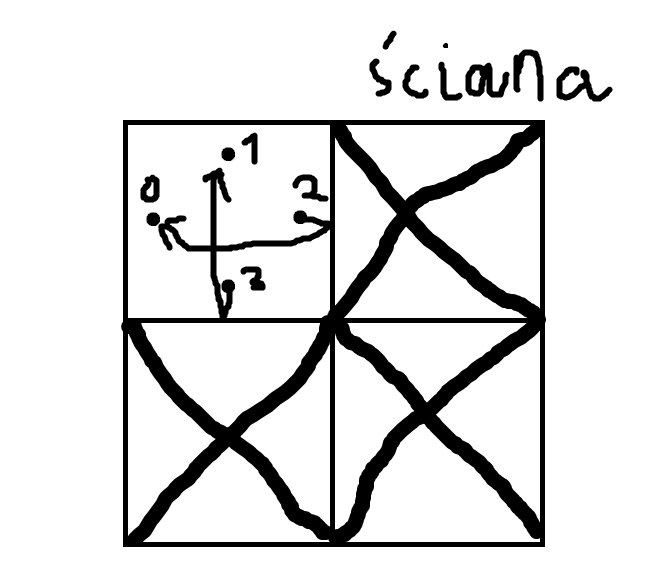 ściana
1
0 2
3